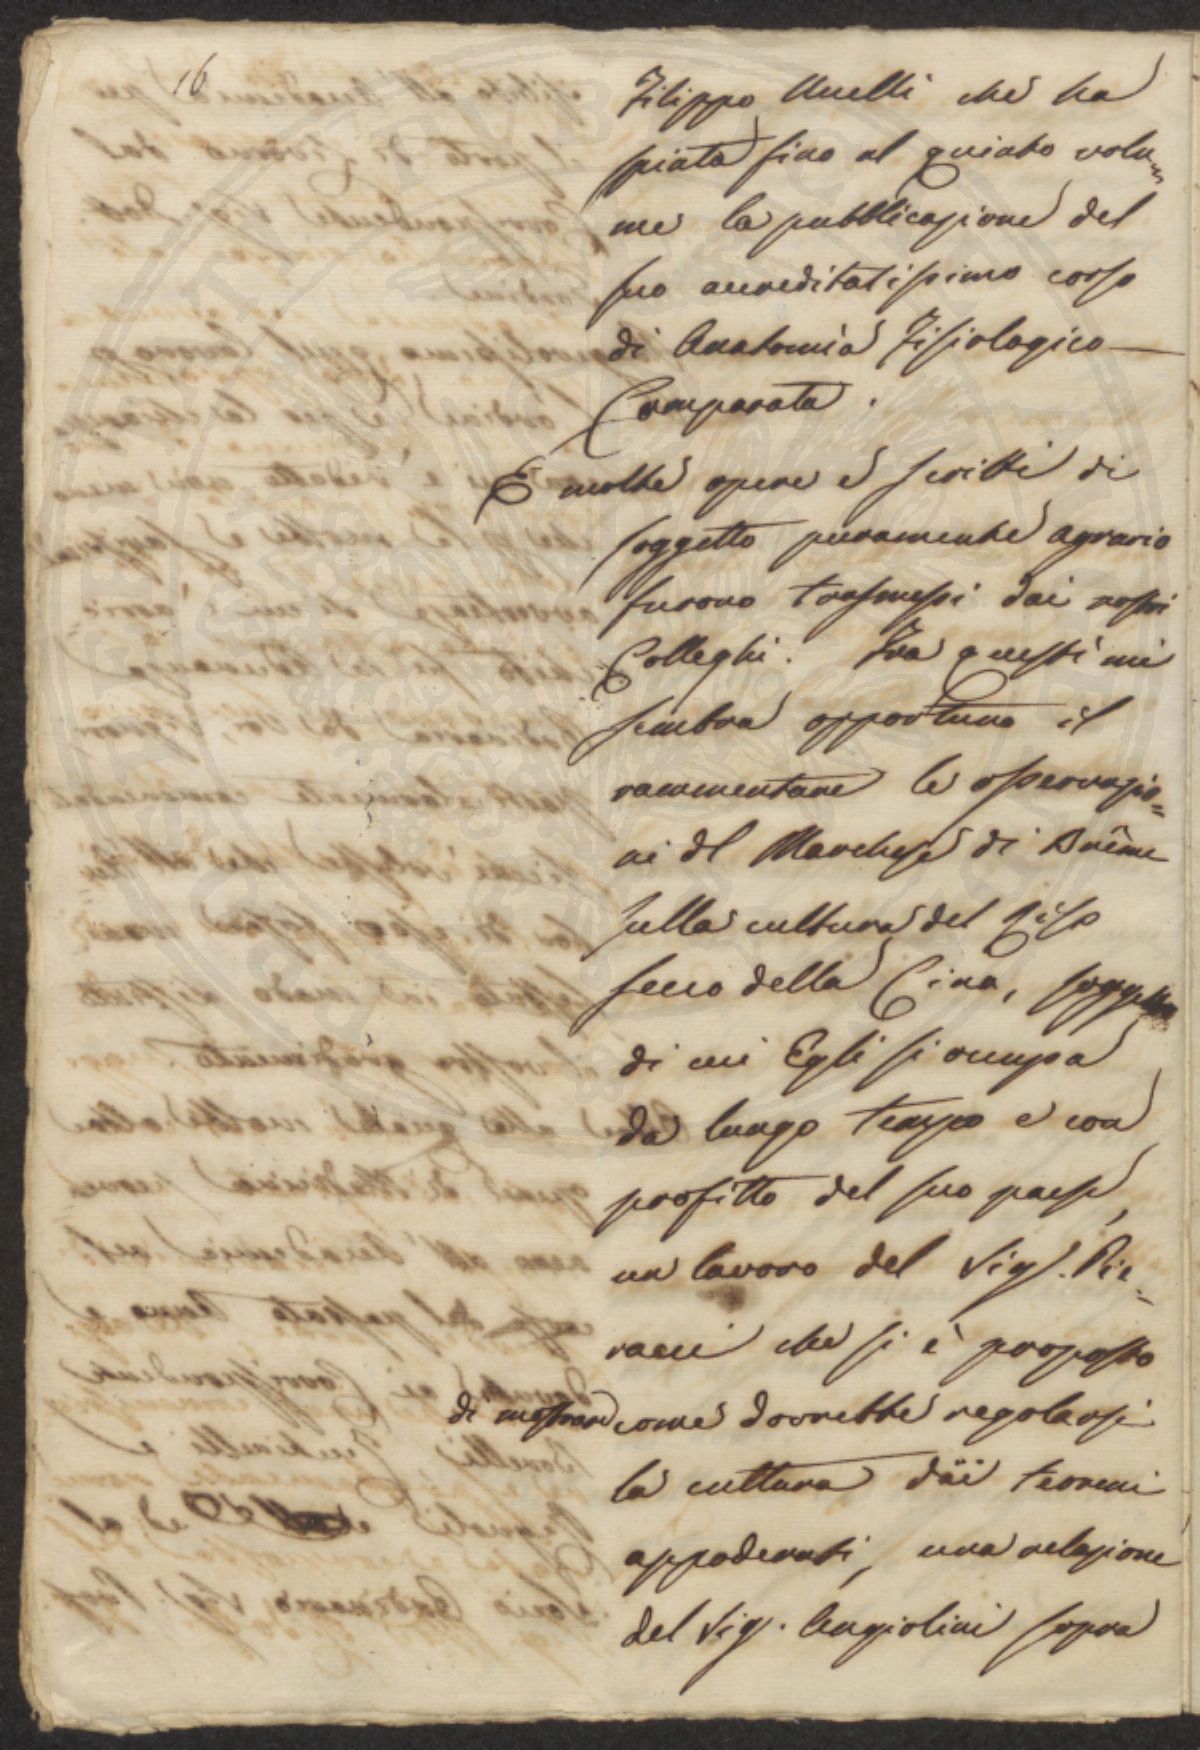 16
Filippo Uccelli che ha
spinta fino al quinto volu=
me la pubblicazione del
suo accreditatissimo corso
di Anatomia Fisiologico—
Comparata.
E molte opere e scritti di
soggetto puramente agrario
furono trasmessi dai nostri
Colleghi. Fra questi mi
sembra opportuno il
rammentare le osservazio=
ni del Marchese di Brême
sulla cultura del Riso
secco della Cina, soggetto
di cui Egli si occupa
da lungo tempo e con
profitto del suo paese,
un lavoro del Sig. Pie=
racci che si è proposto
di mostrare come dovrebbe regolarsi
la cultura dei terreni
appoderati, una relazione
del Sig. Angiolini sopra